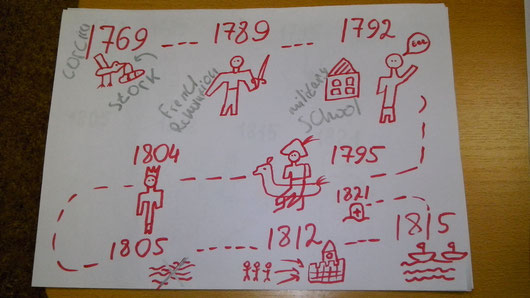 1769 --- 1789 -- 1792
Stork
French
military
School
1804 1795
1821
1805 1812 1815